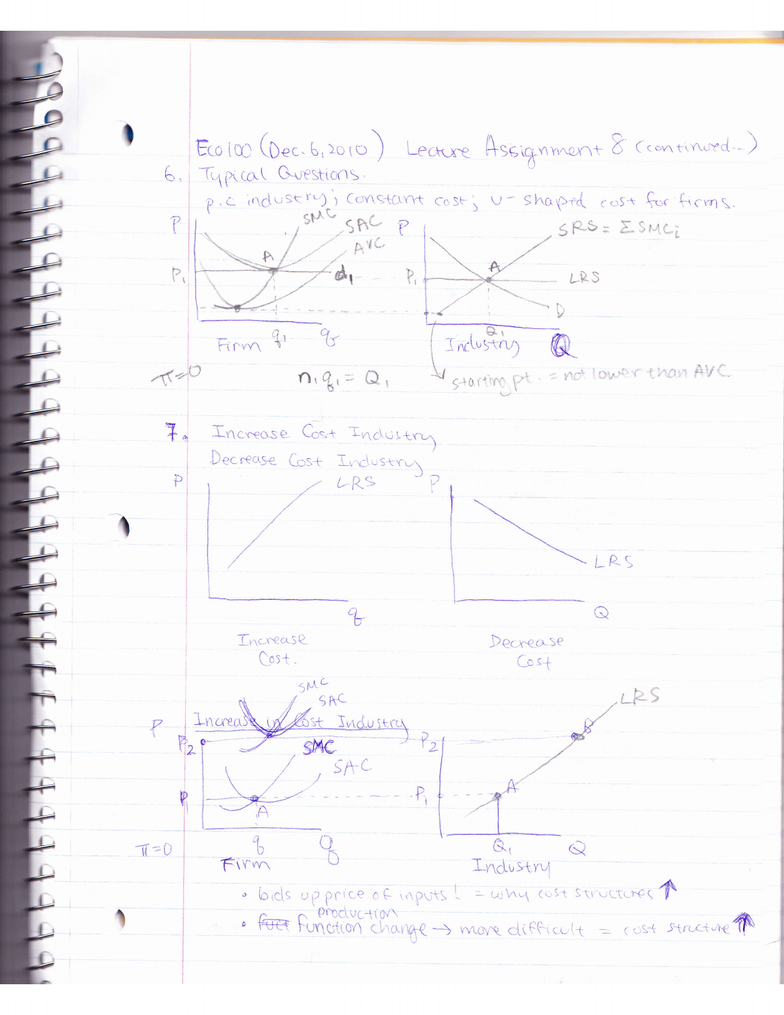 Eco100 (Dec. 6, 2010) Lecture Assignment 8 (continued...)
6. Typical Questions.
p.c industry; constant cost; U-shaped cost for firms.
P SMC SAC AVC P SRS = ΣSMCi
A A
P1 d1 P1 LRS
D
q1 q Q1 Q
Firm Industry
π=0 n1q1 = Q1 starting pt. = not lower than AVC
7. Increase Cost Industry
Decrease Cost Industry
P LRS P
LRS
q Q
Increase Cost. Decrease Cost
SMC LRS
SAC
P Increase in Cost Industry B
P2 SMC P2
SAC
P1 A P1 A
q Q Q1 Q
π=0 Firm Industry
• bids up price of inputs! = why cost structures ↑
production
• function change → more difficult = cost structure ↑